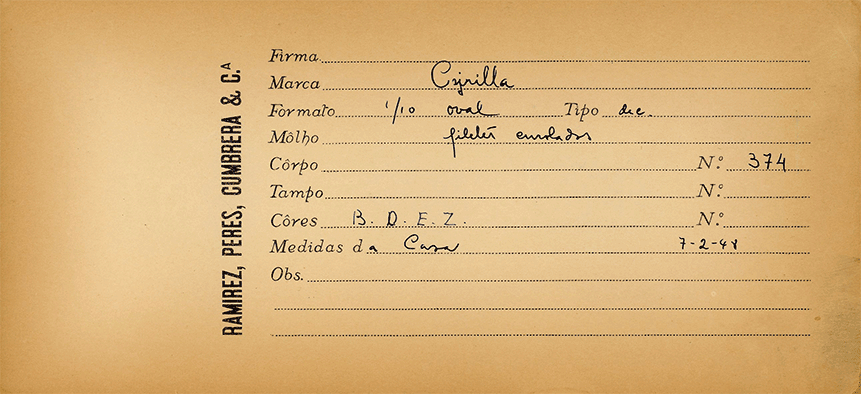 RAMIREZ, PERES, CUMBRERA & C.ᴬ
Firma
Marca Cyrilla
Formato 1/10 oval Tipo dec.
Môlho filetes enrolados
Côrpo N.º 374
Tampo N.º
Côres B. D. E. Z. N.º
Medidas da Casa 7-2-48
Obs.